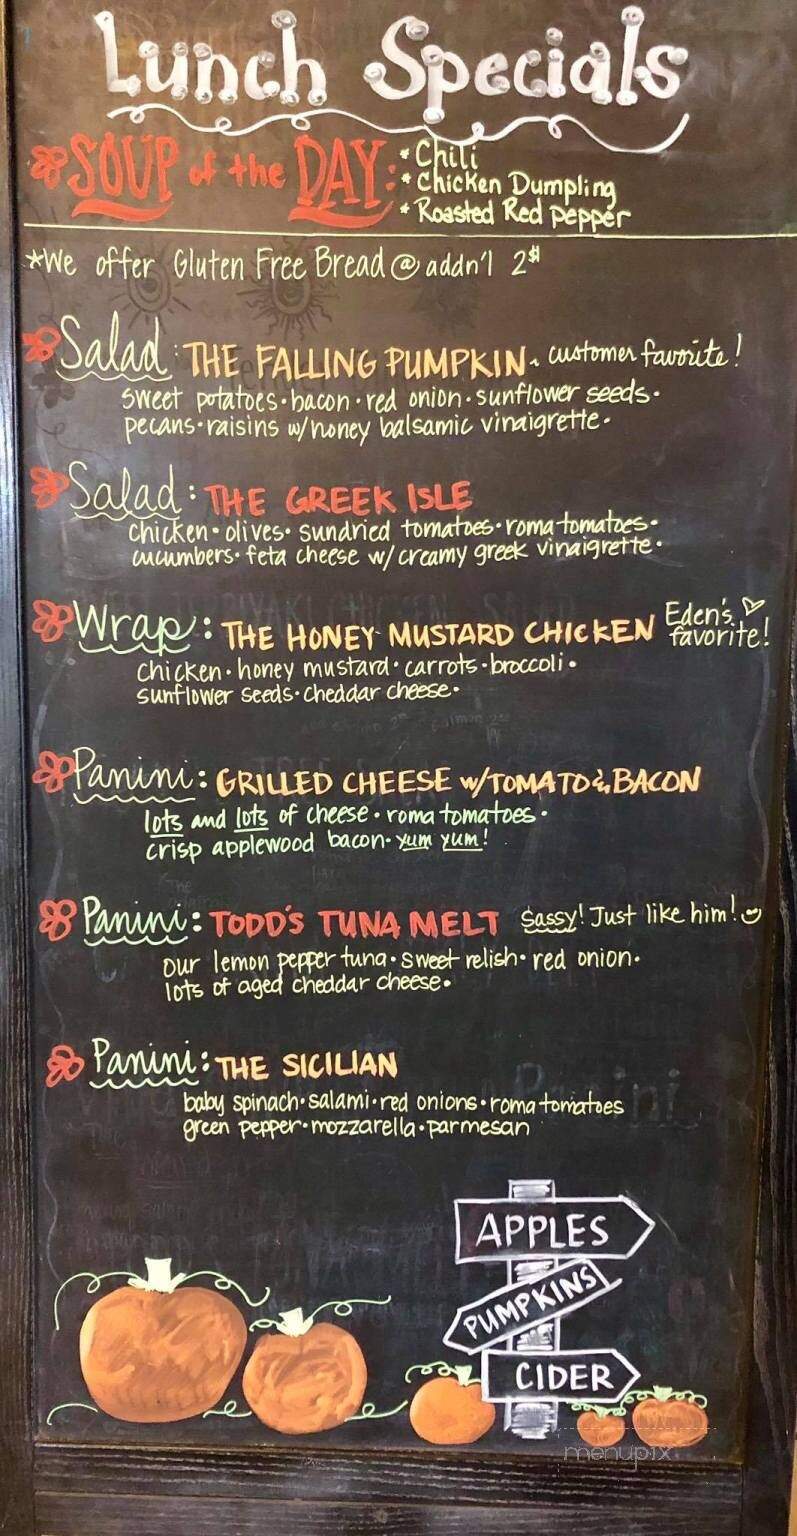 Lunch Specials
SOUP of the DAY: * Chili
* Chicken Dumpling
* Roasted Red Pepper
*We offer Gluten Free Bread @ addn'l 2$
Salad: THE FALLING PUMPKIN ~ customer favorite!
sweet potatoes • bacon • red onion • sunflower seeds •
pecans • raisins w/honey balsamic vinaigrette •
Salad: THE GREEK ISLE
chicken • olives • sundried tomatoes • roma tomatoes •
cucumbers • feta cheese w/ creamy greek vinaigrette •
Wrap: THE HONEY MUSTARD CHICKEN Eden's favorite!
chicken • honey mustard • carrots • broccoli •
sunflower seeds • cheddar cheese •
Panini: GRILLED CHEESE w/TOMATO & BACON
lots and lots of cheese • roma tomatoes •
crisp applewood bacon • yum yum!
Panini: TODD'S TUNA MELT Sassy! Just like him!
our lemon pepper tuna • sweet relish • red onion •
lots of aged cheddar cheese •
Panini: THE SICILIAN
baby spinach • salami • red onions • roma tomatoes
green pepper • mozzarella • parmesan
APPLES
PUMPKINS
CIDER
menupix